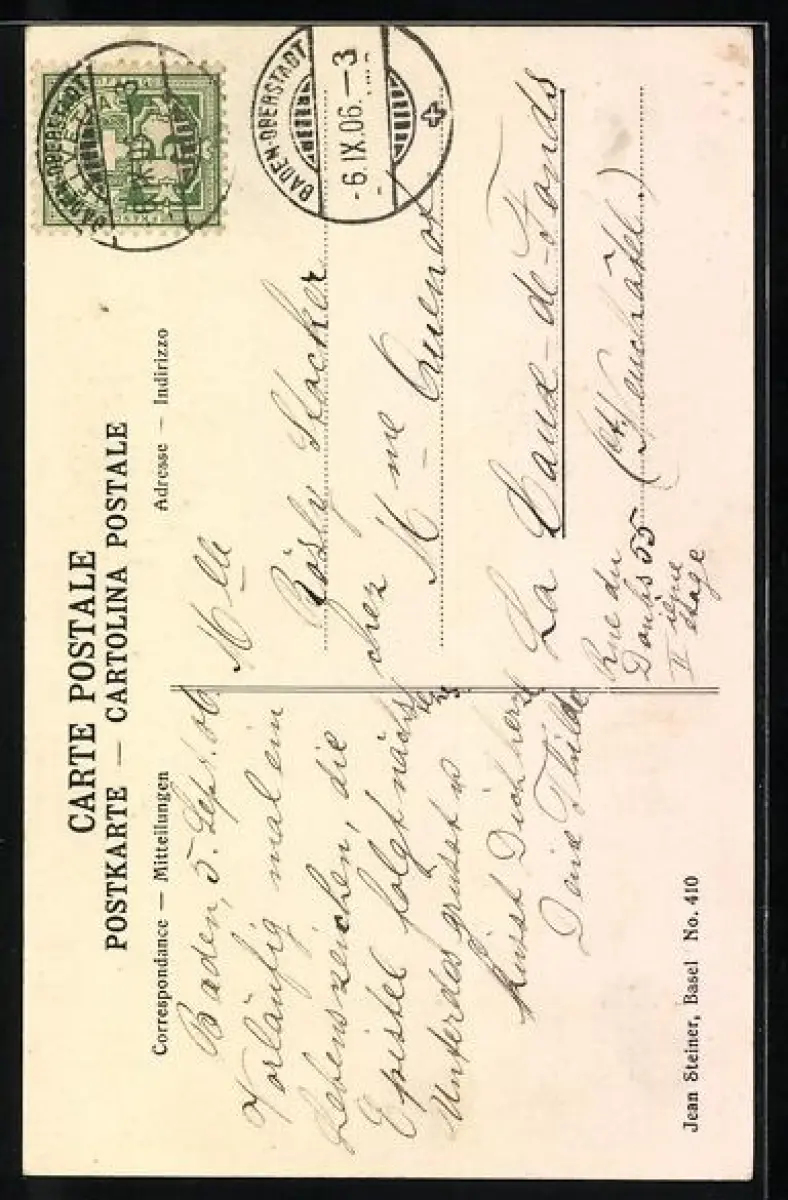 CARTE POSTALE
POSTKARTE — CARTOLINA POSTALE
Correspondance — Mitteilungen
Adresse — Indirizzo
BADEN-OBERSTADT
BADEN-OBERSTADT
-6.IX.06.-3
Baden, 5. Sept. 06.
Vorläufig mal ein
Lebenszeichen, die
Epistel folgt nächstens.
Unterdes grüsst u
küsst Dich herzl
Deine Thilde
Mlle
Rösly Stocker
chez Mme Cuenot
La Chaux-de-Fonds
(Ct. Neuchâtel)
Rue du
Doubs 55
II ième
étage
Jean Steiner, Basel No. 410